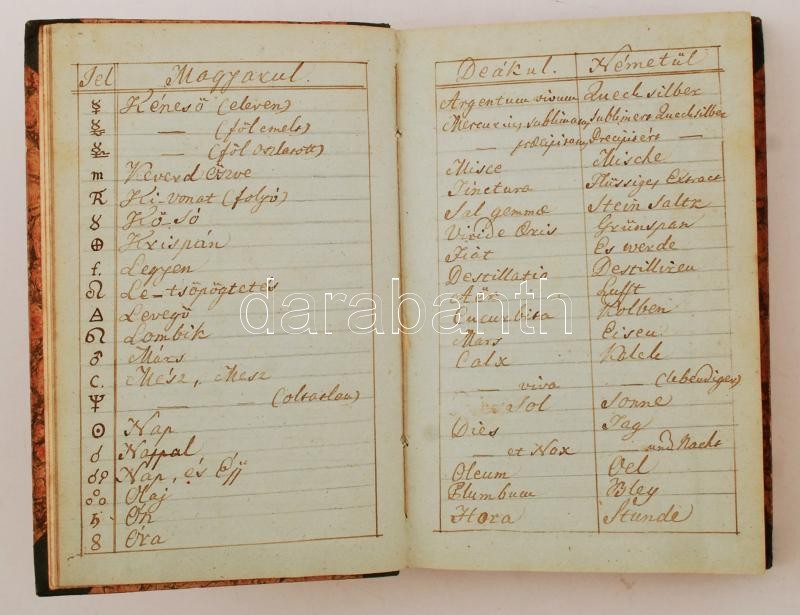 Jel Magyarul.
☿ Kéneső (eleven)
— (föl emelt)
— (föl oszlatott)
m Keverd Öszve
Ki-vonat (folyó)
Kő-só
⊕ Krispán
f. Legyen
Le-tsöpögtetés
Levegő
Lombik
♂ Márs
C. Mész, Mesz
— — (oltatlan)
☉ Nap
Nappal
Nap, és Éjj
Olaj
♄ Ón
8 Óra
Deákul. Németül
Argentum vivum Quecksilber
Mercurius sublimatus, Sublimers Quecksilber
— præcipitatus, Precipisért —
Misce Mische
Tinctura Flüssiges Extract
Sal gemmæ Stein Saltz
Viride Æris Grünspan
Fiat Es werde
Destillatio Destilliren
Aër Lufft
Cucurbita Kolben
Mars Eisen
Calx Kalck
— viva — (lebendiger)
Sol Sonne
Dies Tag
— et Nox — und Nacht
Oleum Oel
Plumbum Bley
Hora Stunde
darabanth